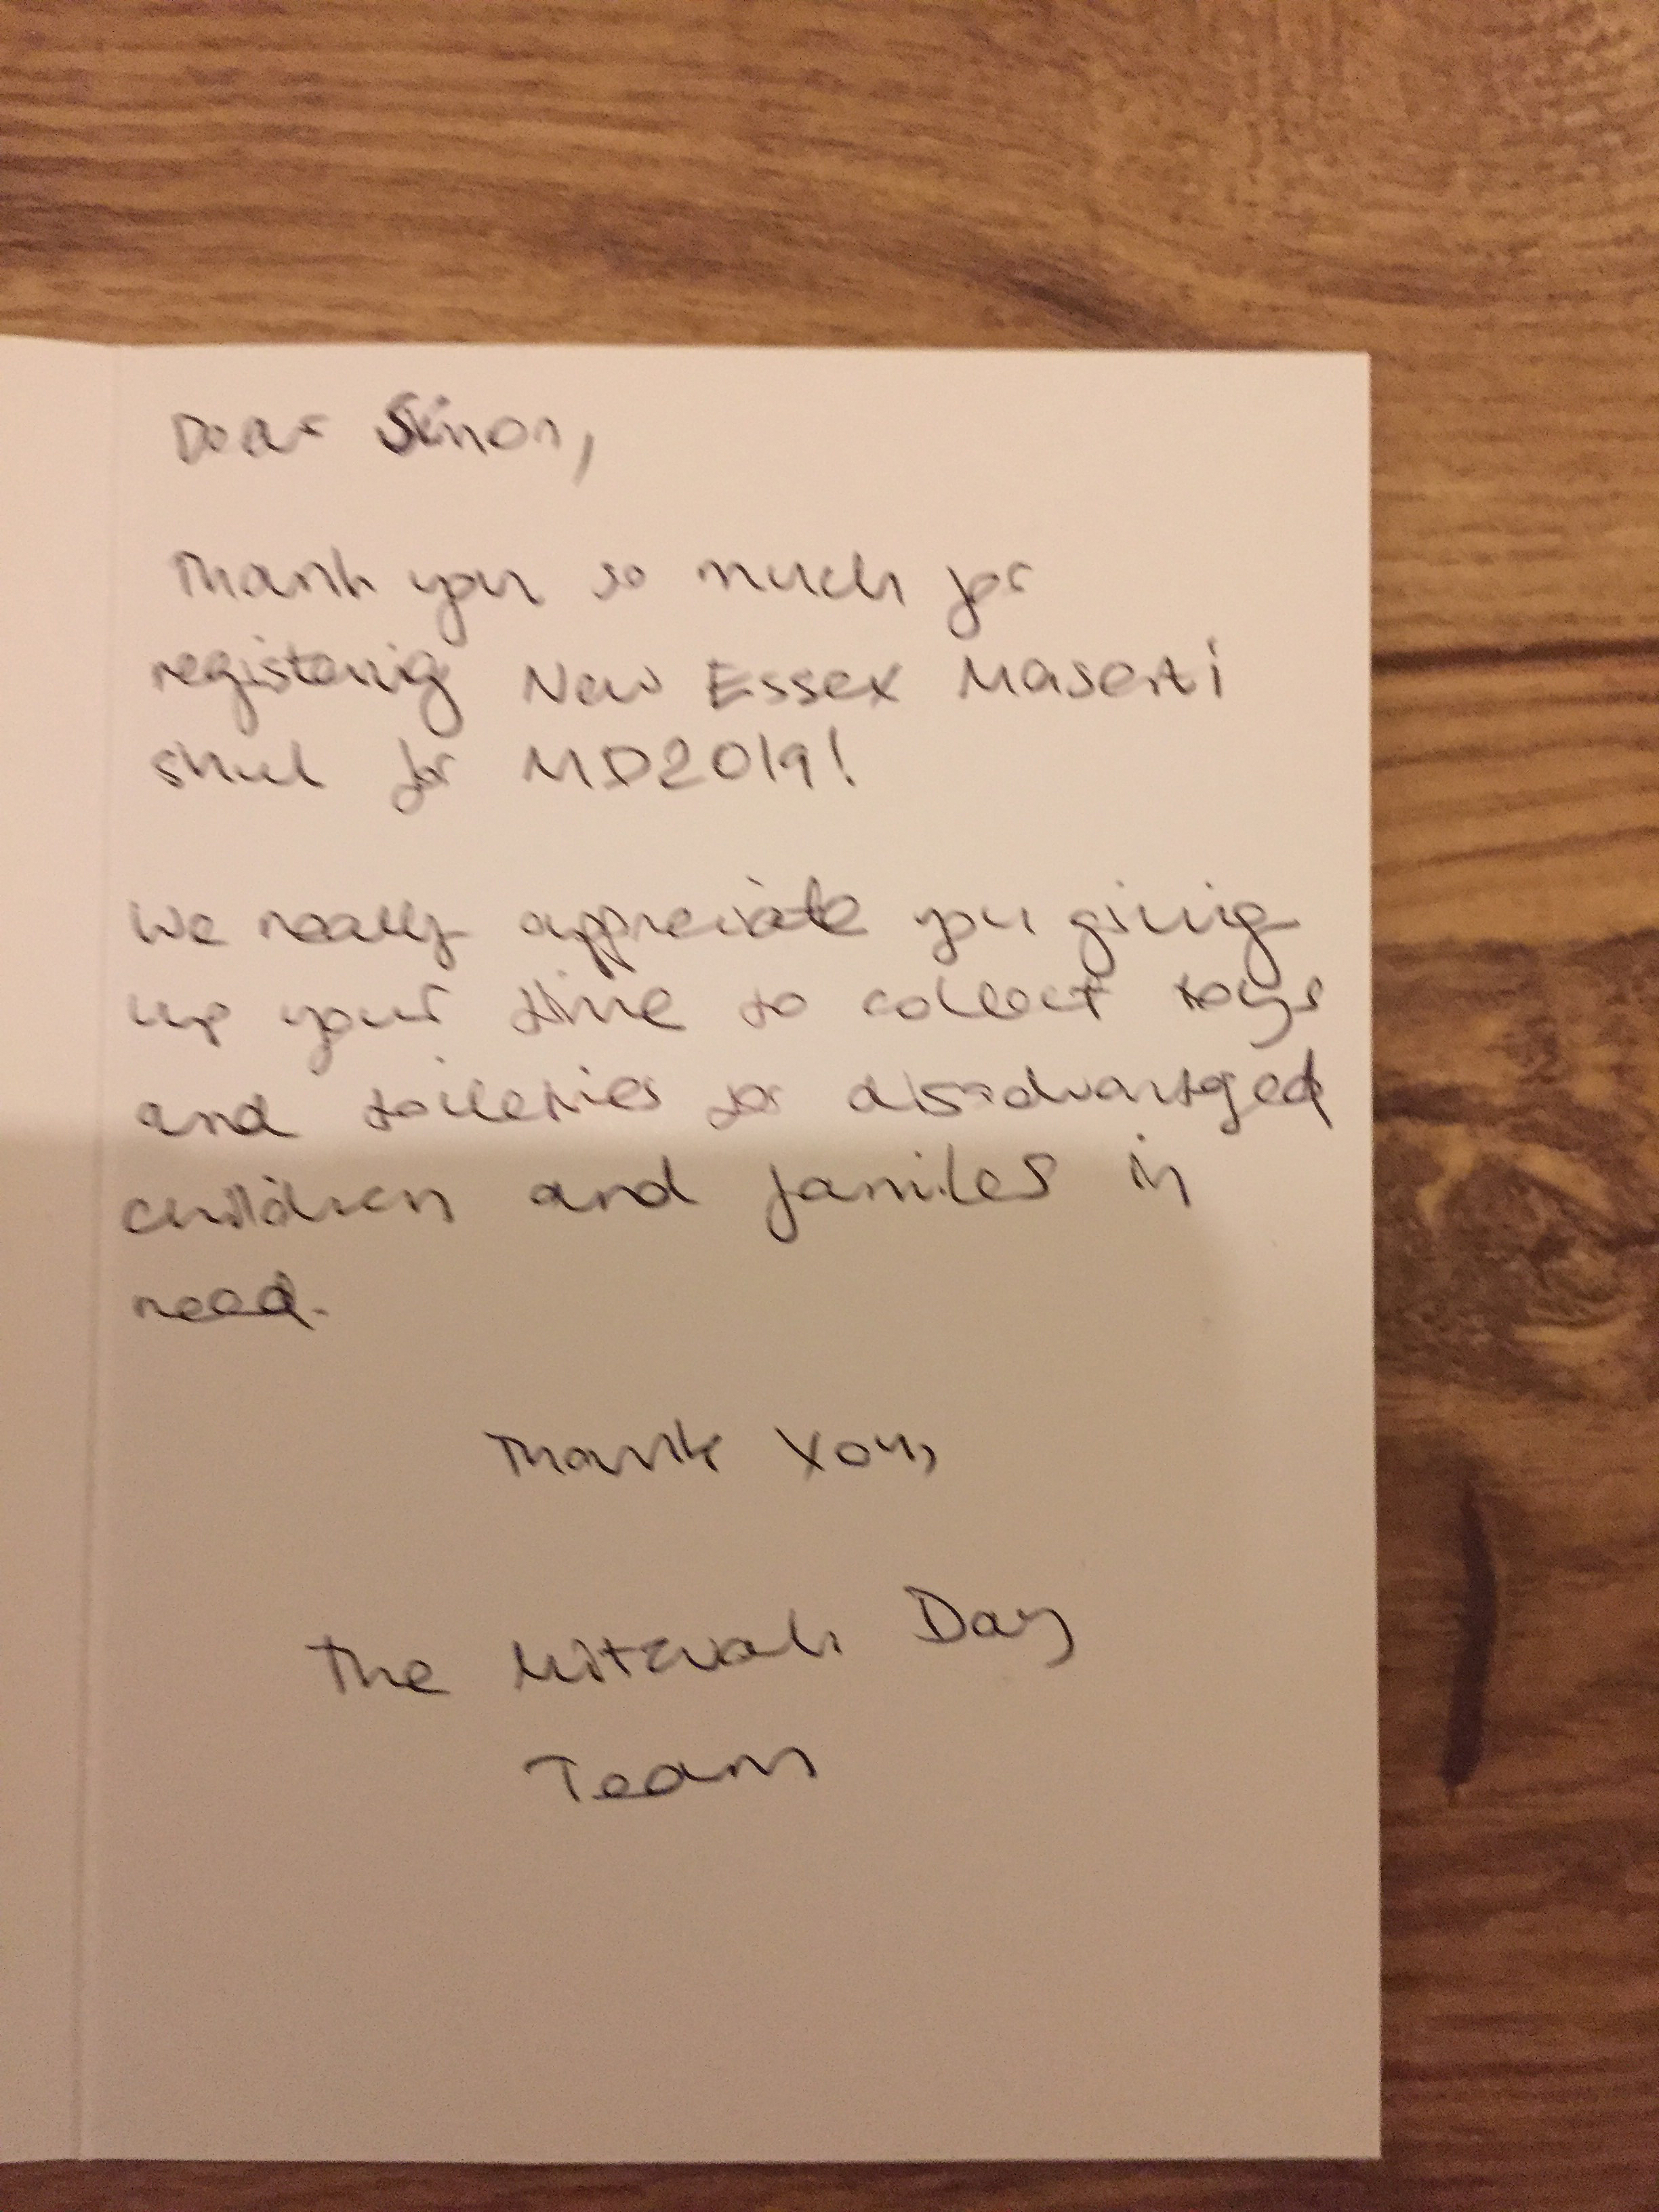 Dear Simon,
Thank you so much for
registering New Essex Masorti
shul for MD2019!
We really appreciate you giving
up your time to collect toys
and toiletries for disadvantaged
children and familes in
need.
Thank You,
The Mitzvah Day
Team